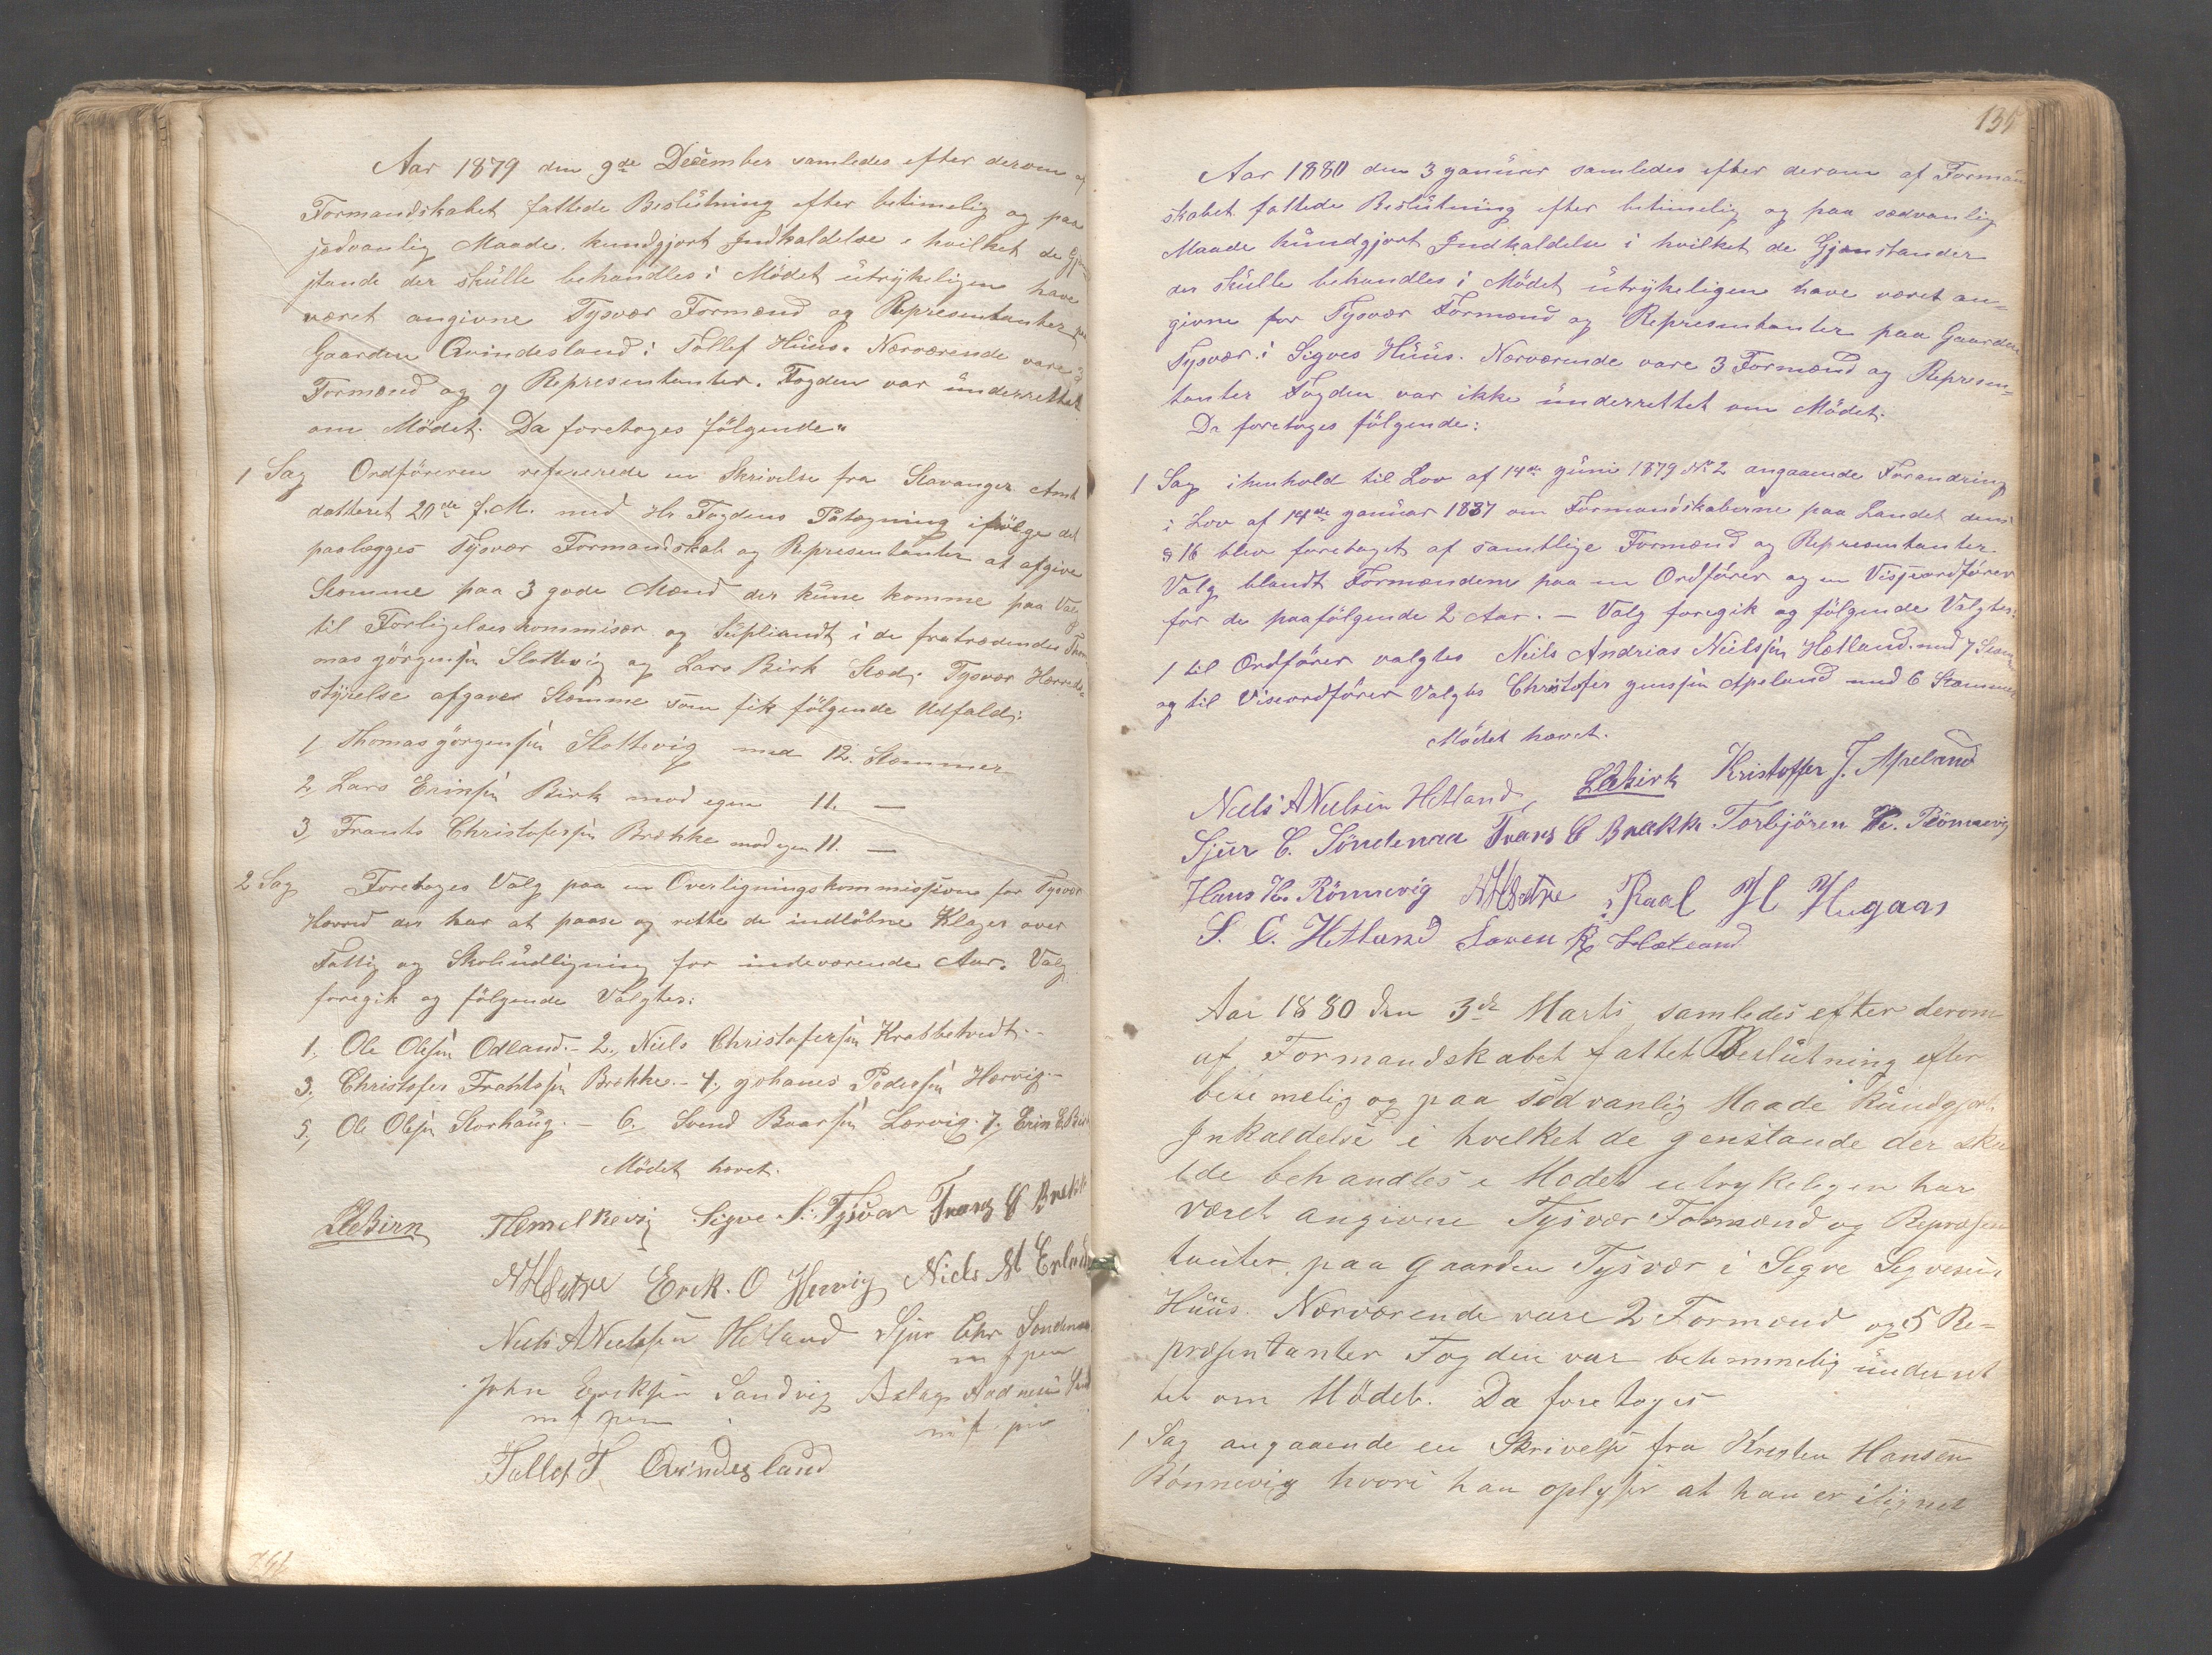 Aar 1879 den 9de December samledes efter derom af
Formandskabet fattede Beslütning efter betimelig og paa
sædvanlig Maade kundgjort Indkaldelse i hvilket de Gjen
stande der skülle behandles i Mödet ütrykeligen have
været angivne Tysvær Formænd og Representanter paa
Gaarden Qvindesland i Tollef Hüus. Nærværende vare 3
Formænd og 9 Representanter. Fogden var ünderrettet
om Mödet. Da foretoges fölgende:
1 Sag Ordföreren refererede en Skrivelse fra Stavanger Amt
datteret 20de f.M. med Hr Fogdens Patægning ifölge det
paalægges Tysvær Formandskab og Representanter at afgive
Stemme paa 3 gode Mænd der küne komme paa Valg
til Forligelseskommisær og Süpliandt i de fratrædendes Tho
mas görgensen Slottevig og Lars Birk Stæd. Tysvær Herreds-
styrelse afgaves Stemme som fik fölgende Udfald:
1, Thomas görgensen Slottevig med 12. Stemmer
2, Lars Erinsen Birk mod egen 11. —
3, Frants Christofersen Brække mod egen 11. —
2 Sag Foretoges Valg paa en Overligningskommissione for Tysvær
Herred der har at paase og rette de indlöbne Klager over
Fattig og Skoleüdligning for indeværende Aar. Valg
foregik og fölgende Valgtes:
1, Ole Olesen Odland.- 2, Niels Christofersen Krabbetvedt.-
3, Christofer Frantssen Brekke.- 4, gohanes Pedersen Hervig.-
5, Ole Olesen Storhaug.- 6. Svend Baarsen Lærvig. 7, Erin L Birk
Mödet hævet.
LEBirk Hemelkevig Sigve S. Tysvær Frans C Brekk
NHSætre Erik. O Hervig Niels M Erlands
Niels ANielssen Hetland Sjur Chr Söndenaa
m f pen
John Eriksen Sandvig Aslag Aadnesen
m f pen m f pen
Tollef T Qvindesland
135
Aar 1880 den 3 ganüar samledes efter derom af Forman
skabet fattede Beslütning efter betimelig og paa sædvanlig
Maade kündgjort Indkaldelse i hvilket de Gjenstander
der skülle behandles i Mödet ütrykeligen have været an-
givne for Tysvær Formænd og Representanter paa Gaarden
Tysvær i Sigves Hüüs. Nærværende vare 3 Formænd og Represen-
tanter Fogden var ikke ünderrettet om Mödet.
Da foretoges fölgende:
1 Sag ihenhold til Lov af 14de güni 1879 No 2 angaaende Forandring
i Lov af 14de ganüar 1837 om Formandskaberne paa Landet dens
§ 16 blev foretaget af samtlige Formænd og Representanter
Valg blandt Formændene paa en Ordförer og en Viseordförer
for de paafölgende 2 Aar. — Valg foregik og fölgende Valgtes:
1 til Ordförer valgtes Niels Andrias Nielssen Hetland med 7 Stem
og til Viseordförer Valgtes Christofer gensen Apeland med 6 Stemmer
Mödet hævet.
Niels ANielsen Hetland, LEBirk Kristoffer J. Apeland
Sjur C. Söndenaa Frans C Brekk Torbjören H. Rönnevig
Hans H. Rönnevig NHSætre Paal H Hugaas
S. C. Hetland Soren R Hetland
Aar 1880 den 3de Marts samledes efter derom
af Formandskabet fattet Beslütning efter
betimelig og paa sedvanlig Maade Kündgjort
Inkaldelse i hvilket de genstande der sku
lde behandles i Modet utrykeligen har
været angivne Tysvær Formænd og Repræsen
tanter paa gaarden Tysvær i Sigve Sigvesens
Hüüs. Nærværende vare 2 Formænd og 5 Re-
præsentanter Fogden var betimmelig ünderret
tet om Mödet. Da foretoges
1 Sag angaaende en Skrivelse fra Kresten Hansen
Rönnevig hvori han oplyser at han er ilignet